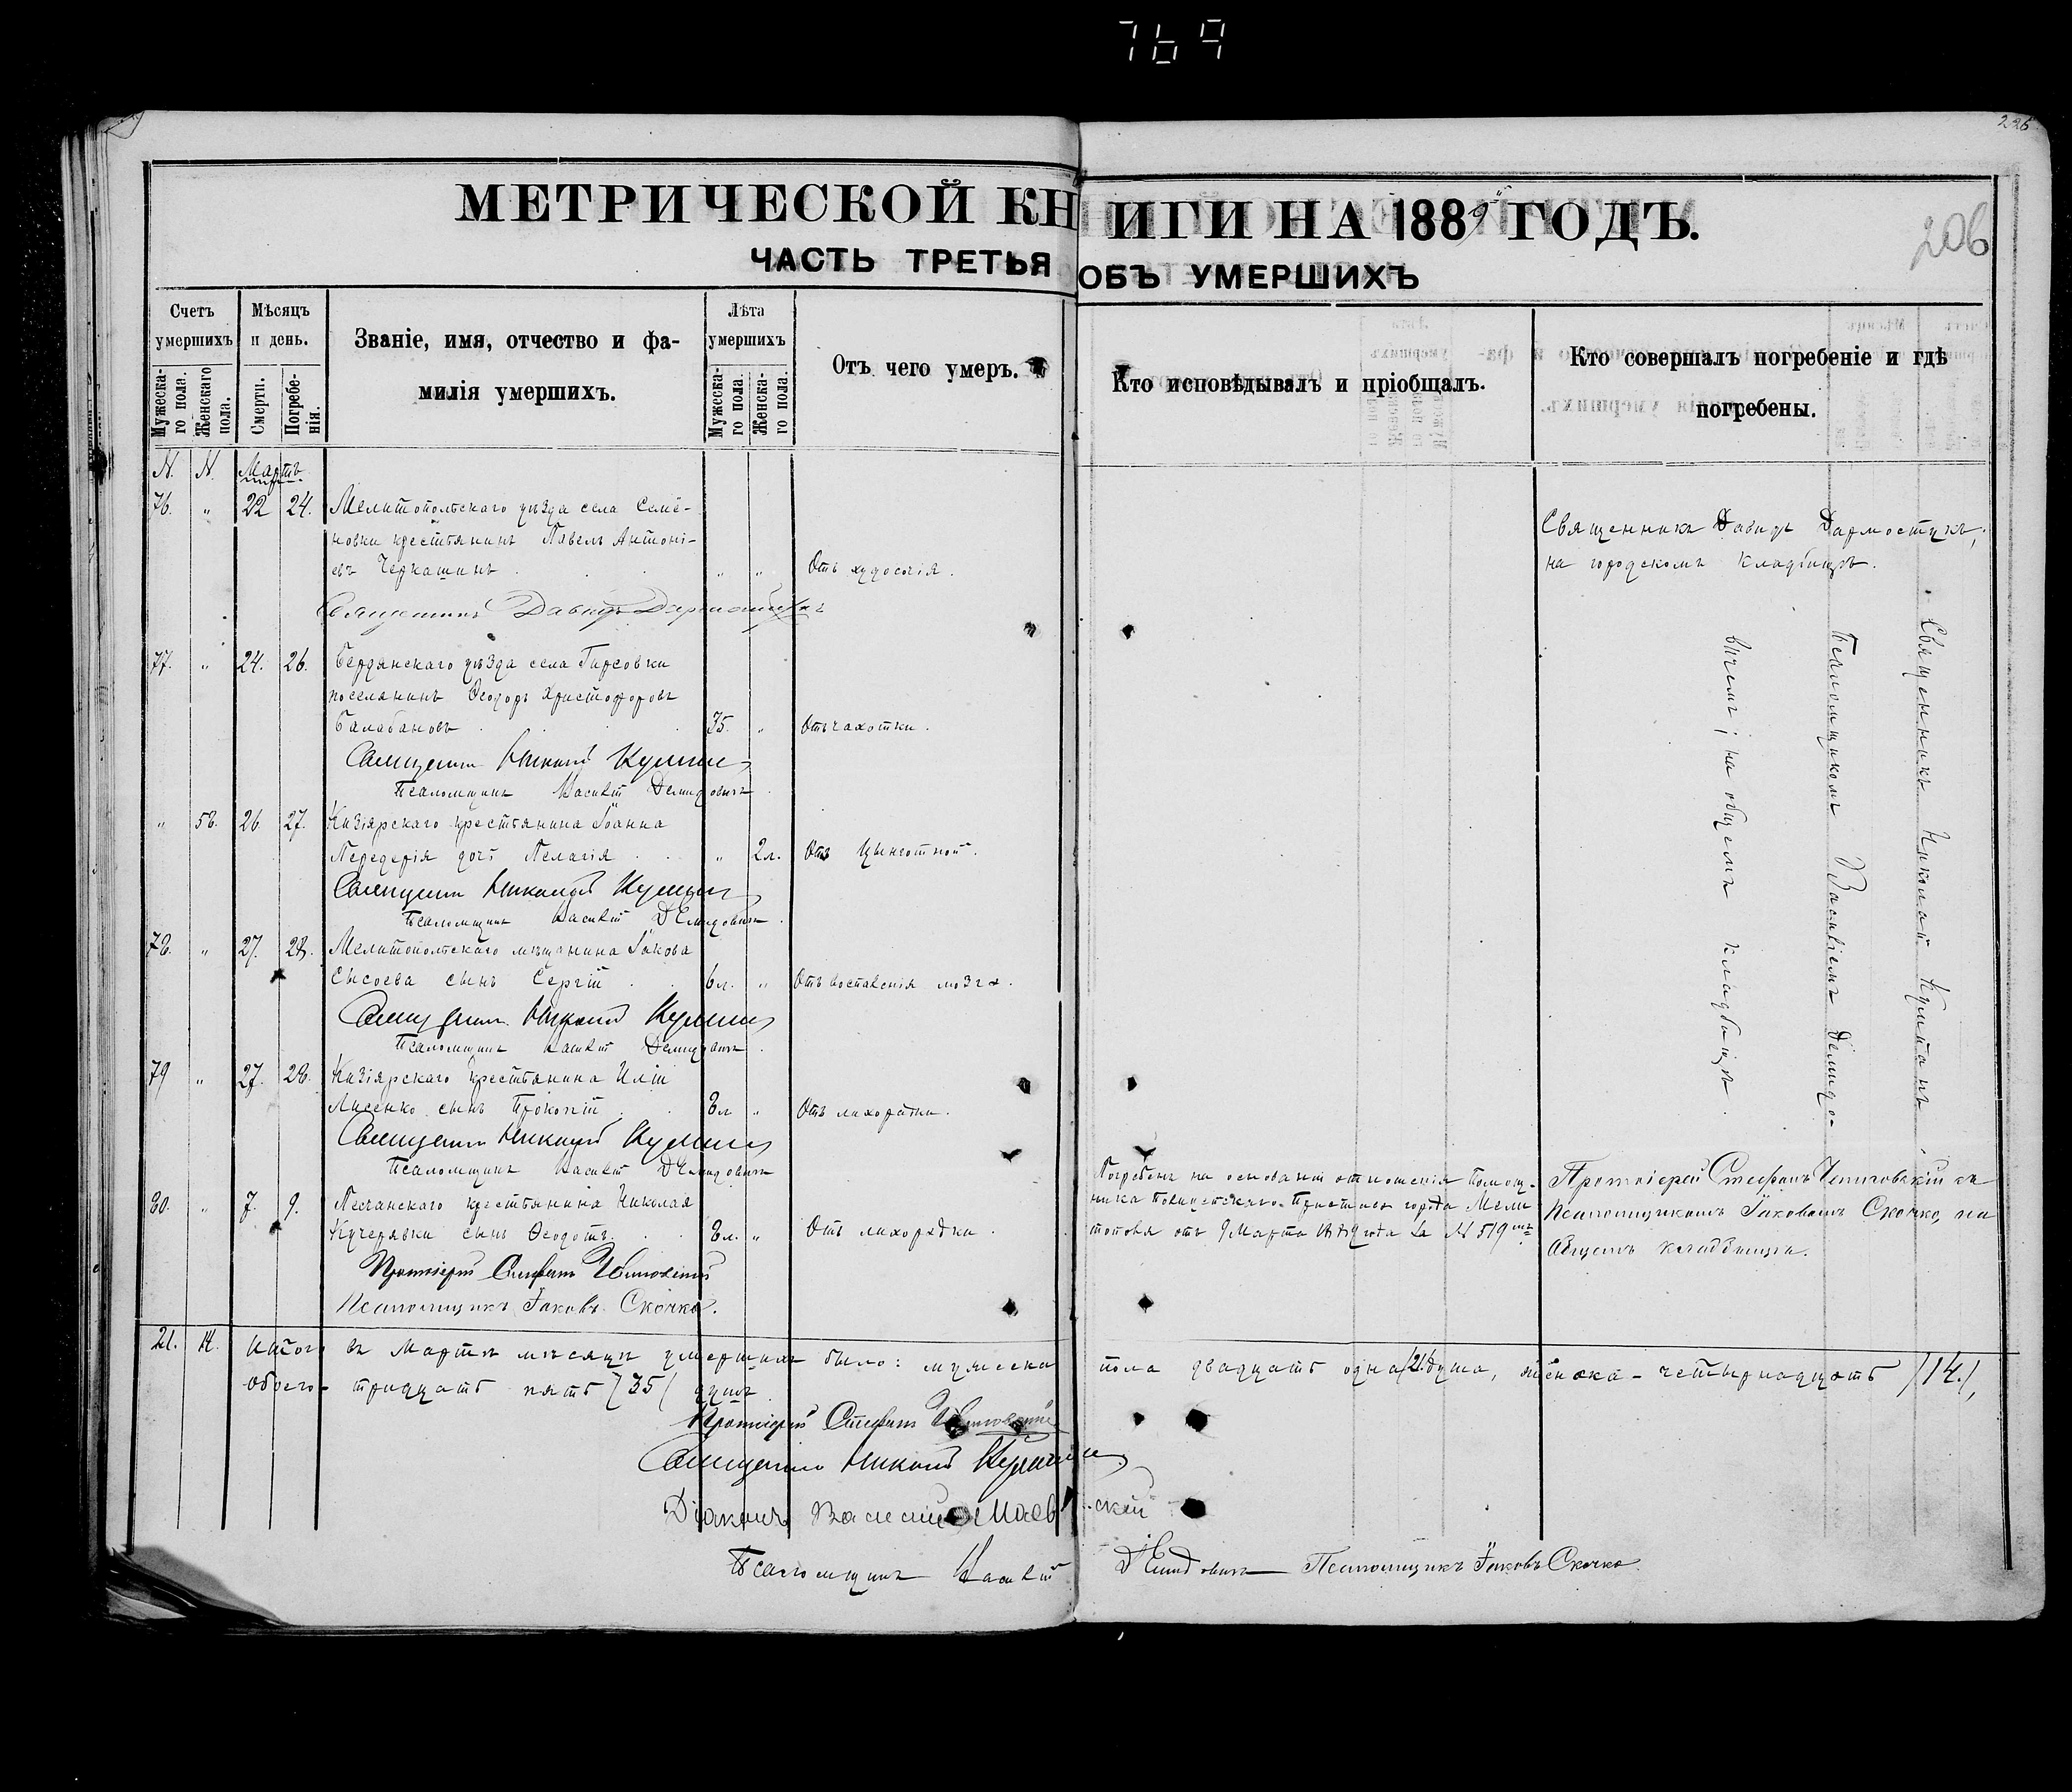 769
226
206
МЕТРИЧЕСКОЙ КНИГИ НА 1889й ГОДЪ.
ЧАСТЬ ТРЕТЬЯ ОБЪ УМЕРШИХЪ
Счетъ умершихъ
Мужеска-го пола.
Женскаго пола.
Мѣсяцъ и день.
Смерти.
Погребе-нія.
Званіе, имя, отчество и фа-
милія умершихъ.
Лѣта умершихъ
Мужеска-го пола.
Женска-го пола.
Отъ чего умеръ.
Кто исповѣдывалъ и пріобщалъ.
Кто совершалъ погребеніе и гдѣ
погребены.
N. N. Мартъ
76. " 22 24. Мелитопольскаго уѣзда села Семе-
новки крестьянинъ Павелъ Антоні-
евъ Черкашинъ . " " Отъ худосочія.
Священникъ Давидъ Дармостукъ,
на городскомъ кладбищѣ.
Священникъ Давидъ Дармостукъ
77. " 24. 26. Бердянскаго уѣзда села Гирсовки
поселянинъ Ѳеодоръ Христофоровъ
Балабановъ . 35. " Отъ чахотки.
Священникъ Николай
Псаломщикъ Василій Демидовичъ
" 58. 26. 27. Кизіярскаго крестьянина Іоанна
Передерія дочь Пелагія . " 2л. Отъ цынготной.
Священникъ Николай
Псаломщикъ Василій Демидовичъ
78. " 27. 28. Мелитопольскаго мѣщанина Іакова
Сысоева сынъ Сергій . 6л. " Отъ воспаленія мозга.
Священникъ Николай
Псаломщикъ Василій Демидовичъ
79 " 27. 28. Кизіярскаго крестьянина Иліи
Лисенко сынъ Прокопій . 8л " Отъ лихорадки.
Священникъ Николай
Псаломщикъ Василій Демидовичъ
Священникъ Николай
Псаломщикомъ Василіемъ Демидо-
вичемъ; на общемъ кладбищѣ.
80. " 7. 9. Песчанскаго крестьянина Николая
Кучерявки сынъ Ѳеодотъ . 8л. " Отъ лихорадки.
Погребенъ на основаніи отношенія Помощ-
ника Полицейскаго Пристава города Мели
тополя отъ 9 Марта 1889 года за № 519мъ
Протоіерей Стефанъ съ
Псаломщикомъ Іаковомъ Скочко, на
Общемъ кладбищѣ.
Протоіерей Стефанъ
Псаломщикъ Іаковъ Скочко.
21. 14. Итого въ Мартѣ мѣсяцѣ умершихъ было: мужеска пола двадцать одна /21/ душа, женска - четырнадцать /14/,
обоего - тридцать пять /35/ душъ.
Протоіерей Стефанъ
Священникъ Николай
Діаконъ Василій Маевскій
Псаломщикъ Василій Демидовичъ Псаломщикъ Іаковъ Скочко